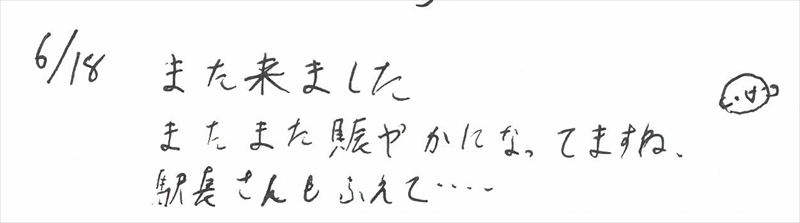 6/18
また来ました
またまた賑やかになってますね、
駅長さんもふえて・・・・